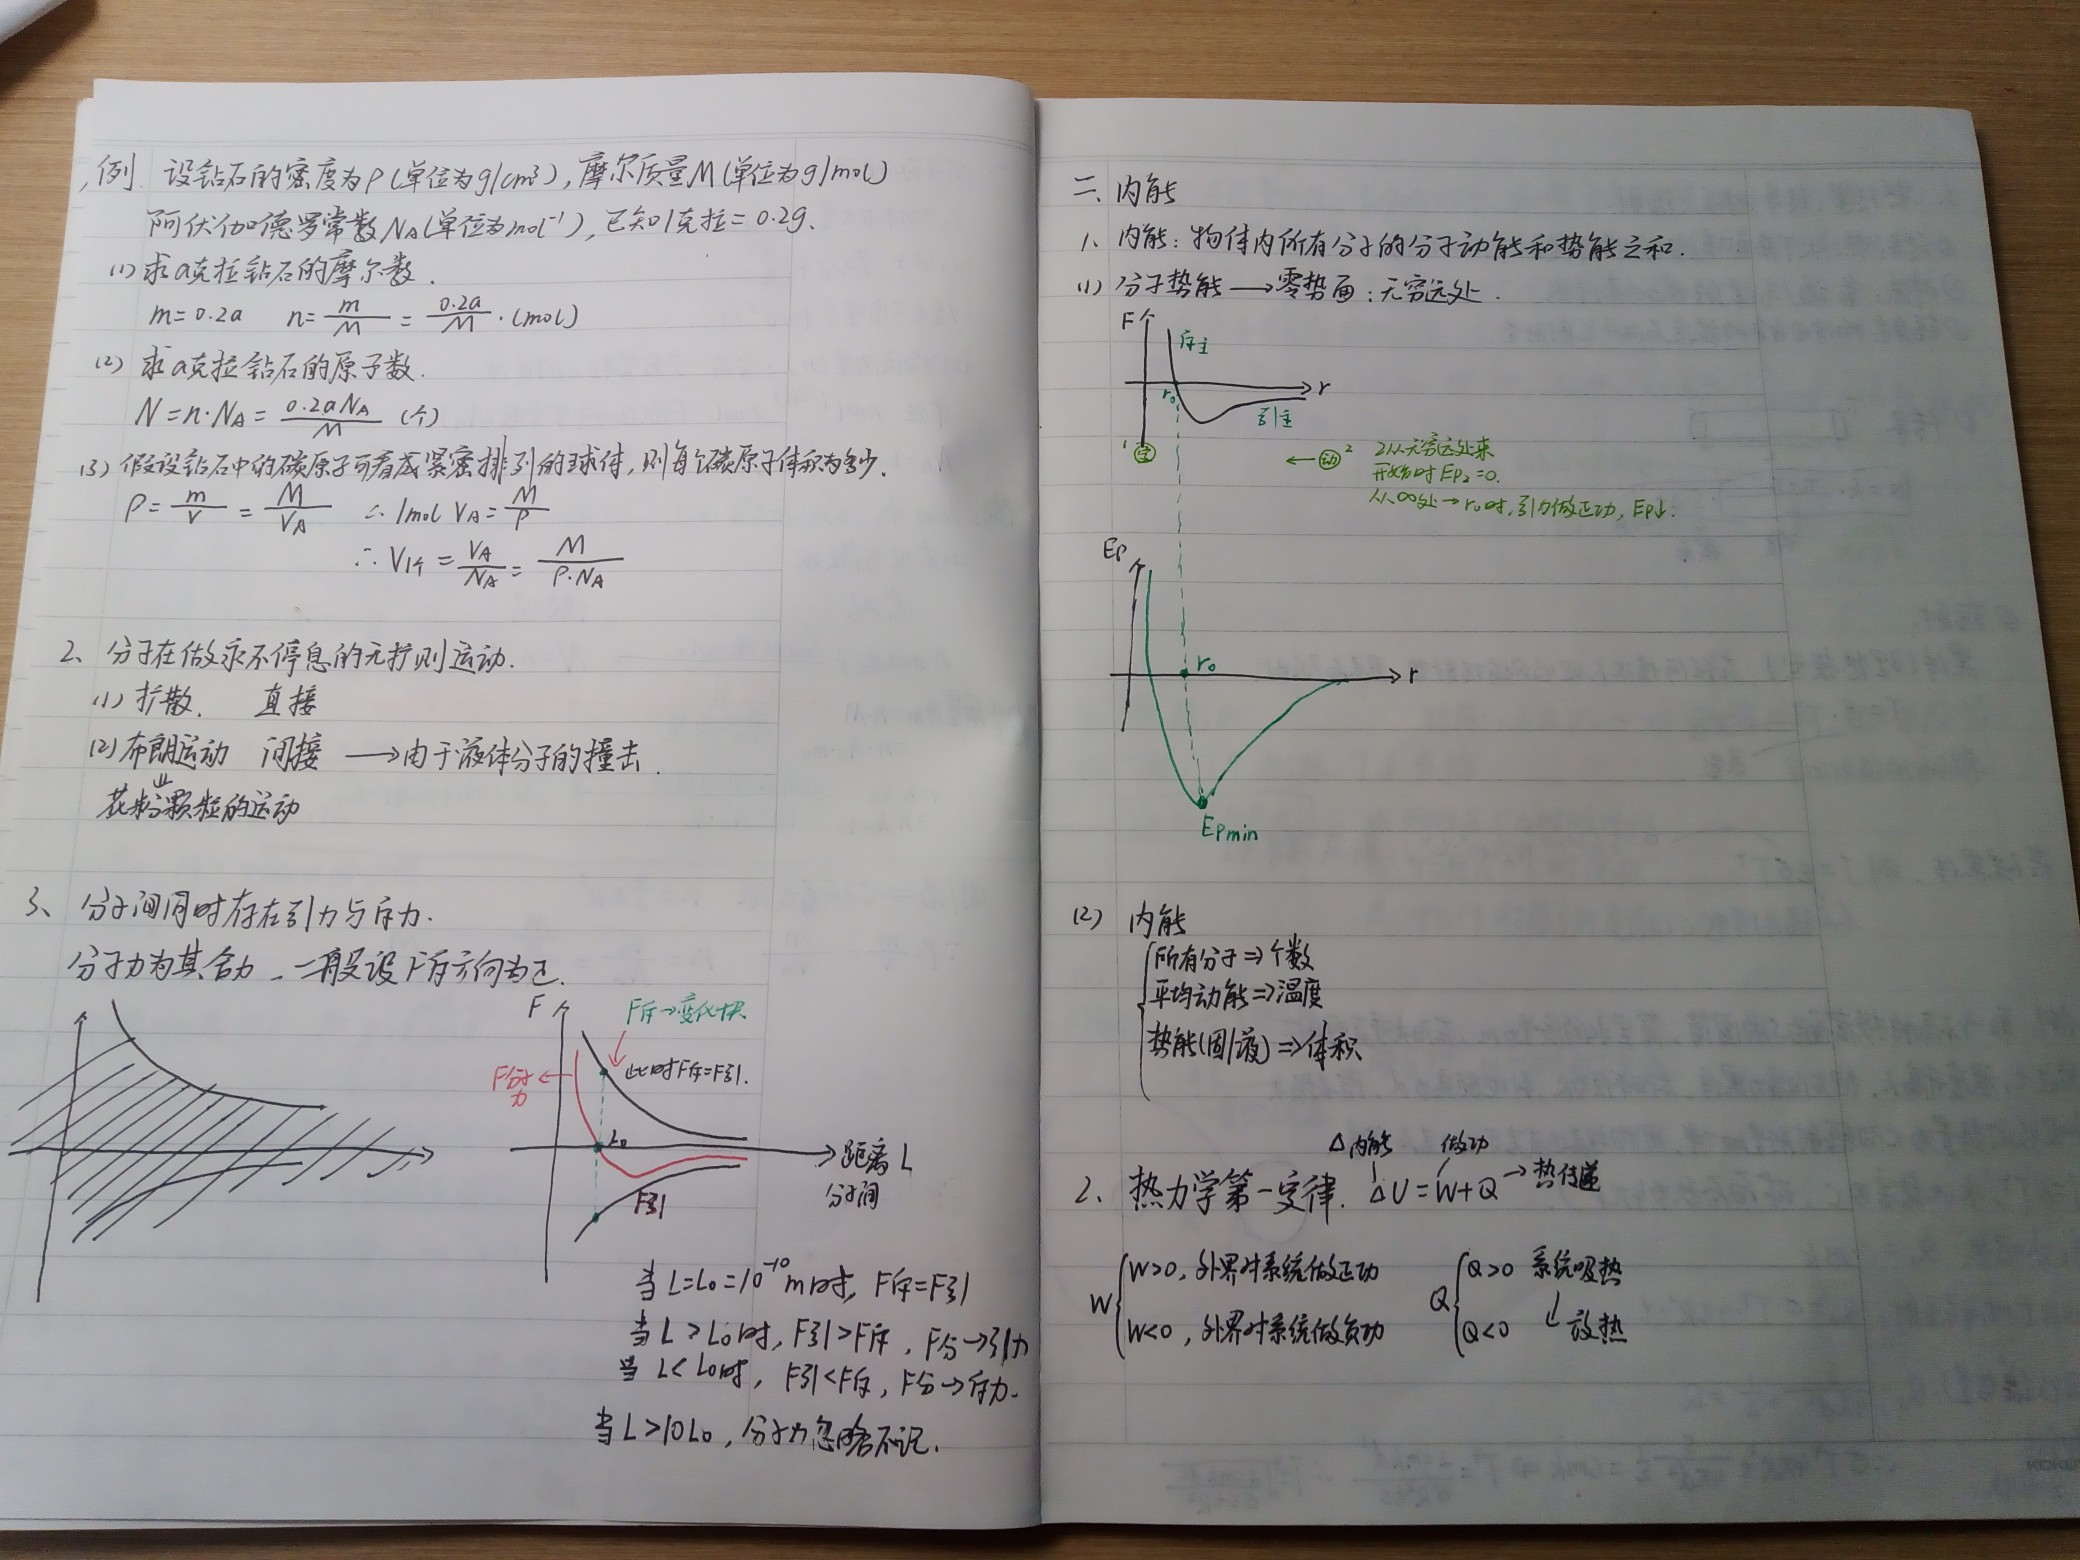 例. 设钻石的密度为ρ(单位为g/cm³), 摩尔质量M(单位为g/mol)
阿伏伽德罗常数NA(单位为mol⁻¹), 已知1克拉=0.2g.
(1) 求a克拉钻石的摩尔数.
m=0.2a n=m/M=0.2a/M·(mol)
(2) 求a克拉钻石的原子数.
N=n·NA=0.2aNA/M (个)
(3) 假设钻石中的碳原子可看成紧密排列的球体, 则每个碳原子体积为多少.
ρ=m/V=M/VA ∴1mol VA=M/ρ
∴V1个=VA/NA=M/ρ·NA
2、分子在做永不停息的无规则运动.
(1) 扩散. 直接
(2) 布朗运动 间接 →由于液体分子的撞击.
花粉颗粒的运动
3、分子间同时存在引力与斥力.
分子力为其合力, 一般设F斥方向为正.
F
F斥→变化快
F分子力
此时F斥=F引.
L0
距离L
分子间
F引
当L=L0=10⁻¹⁰m时, F斥=F引
当L>L0时, F引>F斥, F分→引力
当L<L0时, F引<F斥, F分→斥力.
当L>10L0, 分子力忽略不记.
二. 内能
1、内能: 物体内所有分子的分子动能和势能之和.
(1) 分子势能→零势面: 无穷远处.
F
斥主
r0
r
引主
1 定
←动 2
2从无穷远处来
开始时EP2=0.
从∞处→r0时, 引力做正功, EP↓.
EP
r0
r
EPmin
(2) 内能
所有分子⇒个数
平均动能⇒温度
势能(固/液)⇒体积
Δ内能 做功
2、热力学第一定律. ΔU=W+Q→热传递
W{W>0, 外界对系统做正功
W<0, 外界对系统做负功
Q{Q>0 系统吸热
Q<0 ↓放热